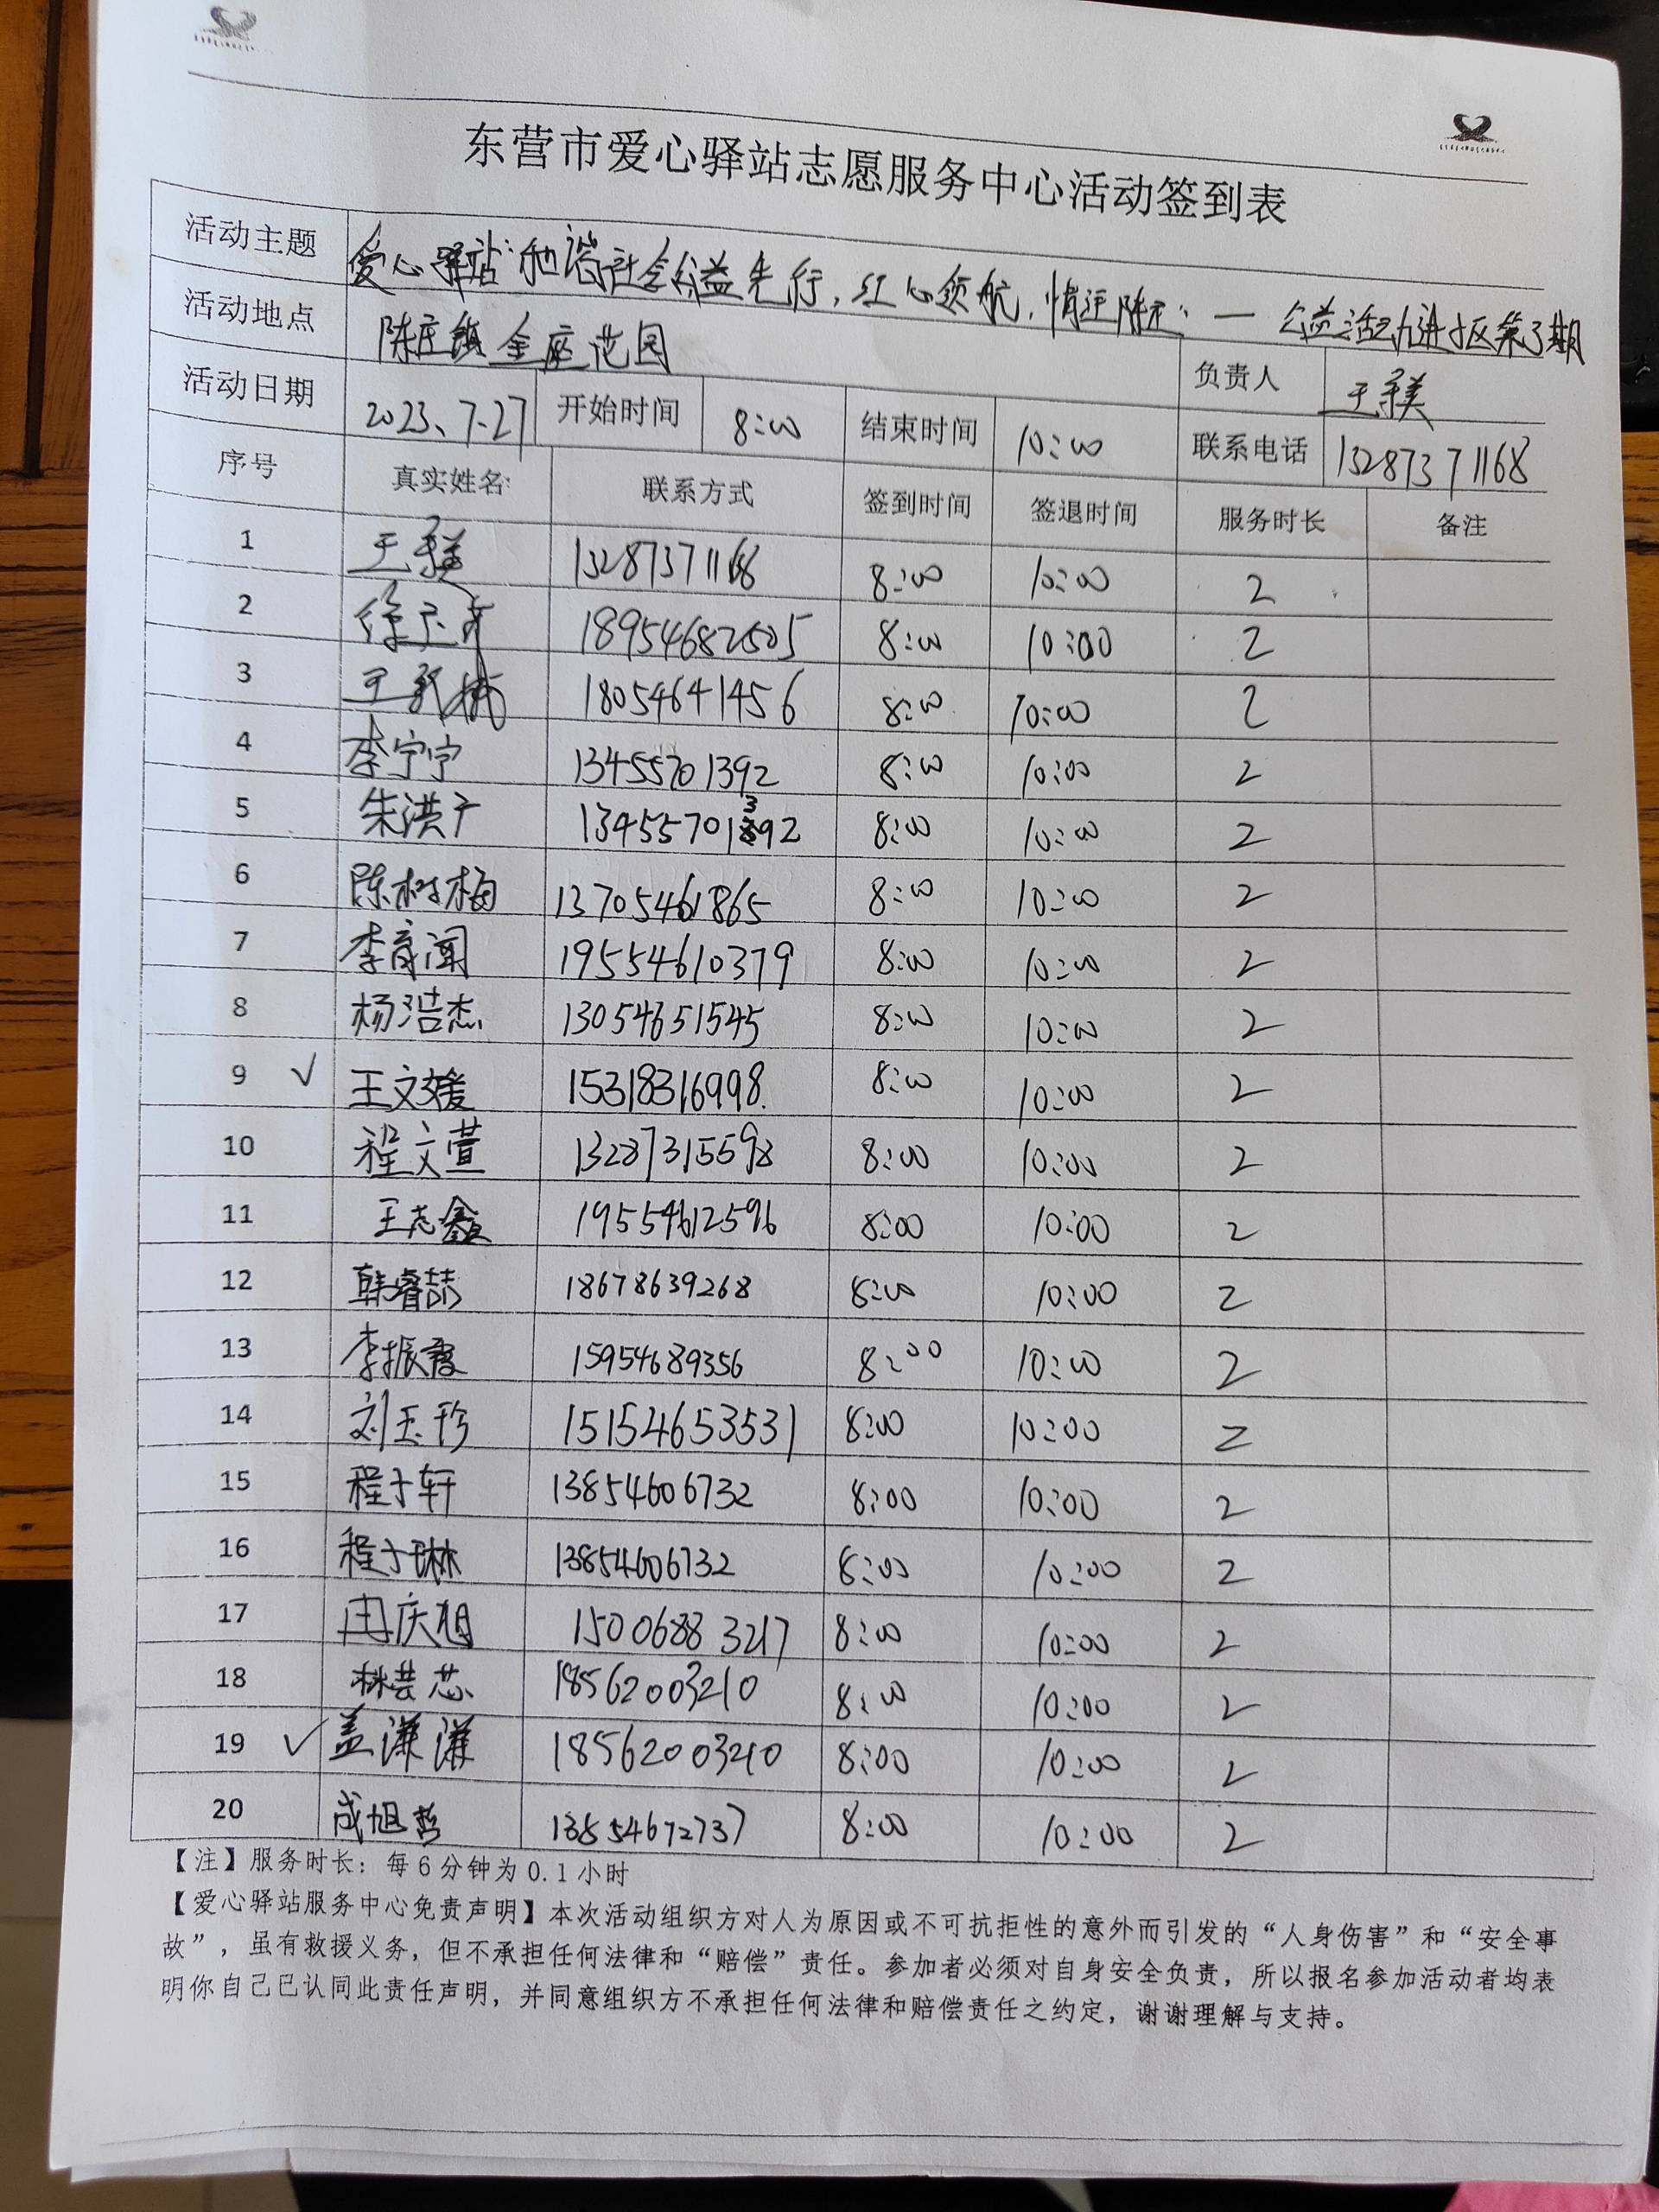 东营市爱心驿站志愿服务中心活动签到表
活动主题 爱心驿站"和谐社会公益先行,红心领航,情运陈庄"—公益活动进社区第3期
活动地点 陈庄镇金座范园 负责人 王
活动日期 2023、7.27 开始时间 8:00 结束时间 10:00 联系电话 13287371168
序号 真实姓名 联系方式 签到时间 签退时间 服务时长 备注
1 王 13287371168 8:00 10:00 2
2 徐 18954682505 8:00 10:00 2
3 王 18054641456 8:00 10:00 2
4 李宁宁 13455701392 8:00 10:00 2
5 朱洪 13455701392 8:00 10:00 2
6 陈树梅 13705461865 8:00 10:00 2
7 李育闻 19554610379 8:00 10:00 2
8 杨浩杰 13054651545 8:00 10:00 2
9 √ 王文媛 15318316998. 8:00 10:00 2
10 程文萱 13287315598 8:00 10:00 2
11 王志鑫 19554612596 8:00 10:00 2
12 韩睿喆 18678639268 8:00 10:00 2
13 李振 15954689356 8:00 10:00 2
14 刘玉珍 15154653531 8:00 10:00 2
15 程子轩 13854606732 8:00 10:00 2
16 程子琳 13854606732 8:00 10:00 2
17 冉庆旭 15006883217 8:00 10:00 2
18 林芸芯 18562003210 8:00 10:00 2
19 √ 盖潇潇 18562003210 8:00 10:00 2
20 成旭哲 13854672737 8:00 10:00 2
【注】服务时长：每6分钟为0.1小时
【爱心驿站服务中心免责声明】本次活动组织方对人为原因或不可抗拒性的意外而引发的“人身伤害”和“安全事
故”，虽有救援义务，但不承担任何法律和“赔偿”责任。参加者必须对自身安全负责，所以报名参加活动者均表
明你自己已认同此责任声明，并同意组织方不承担任何法律和赔偿责任之约定，谢谢理解与支持。